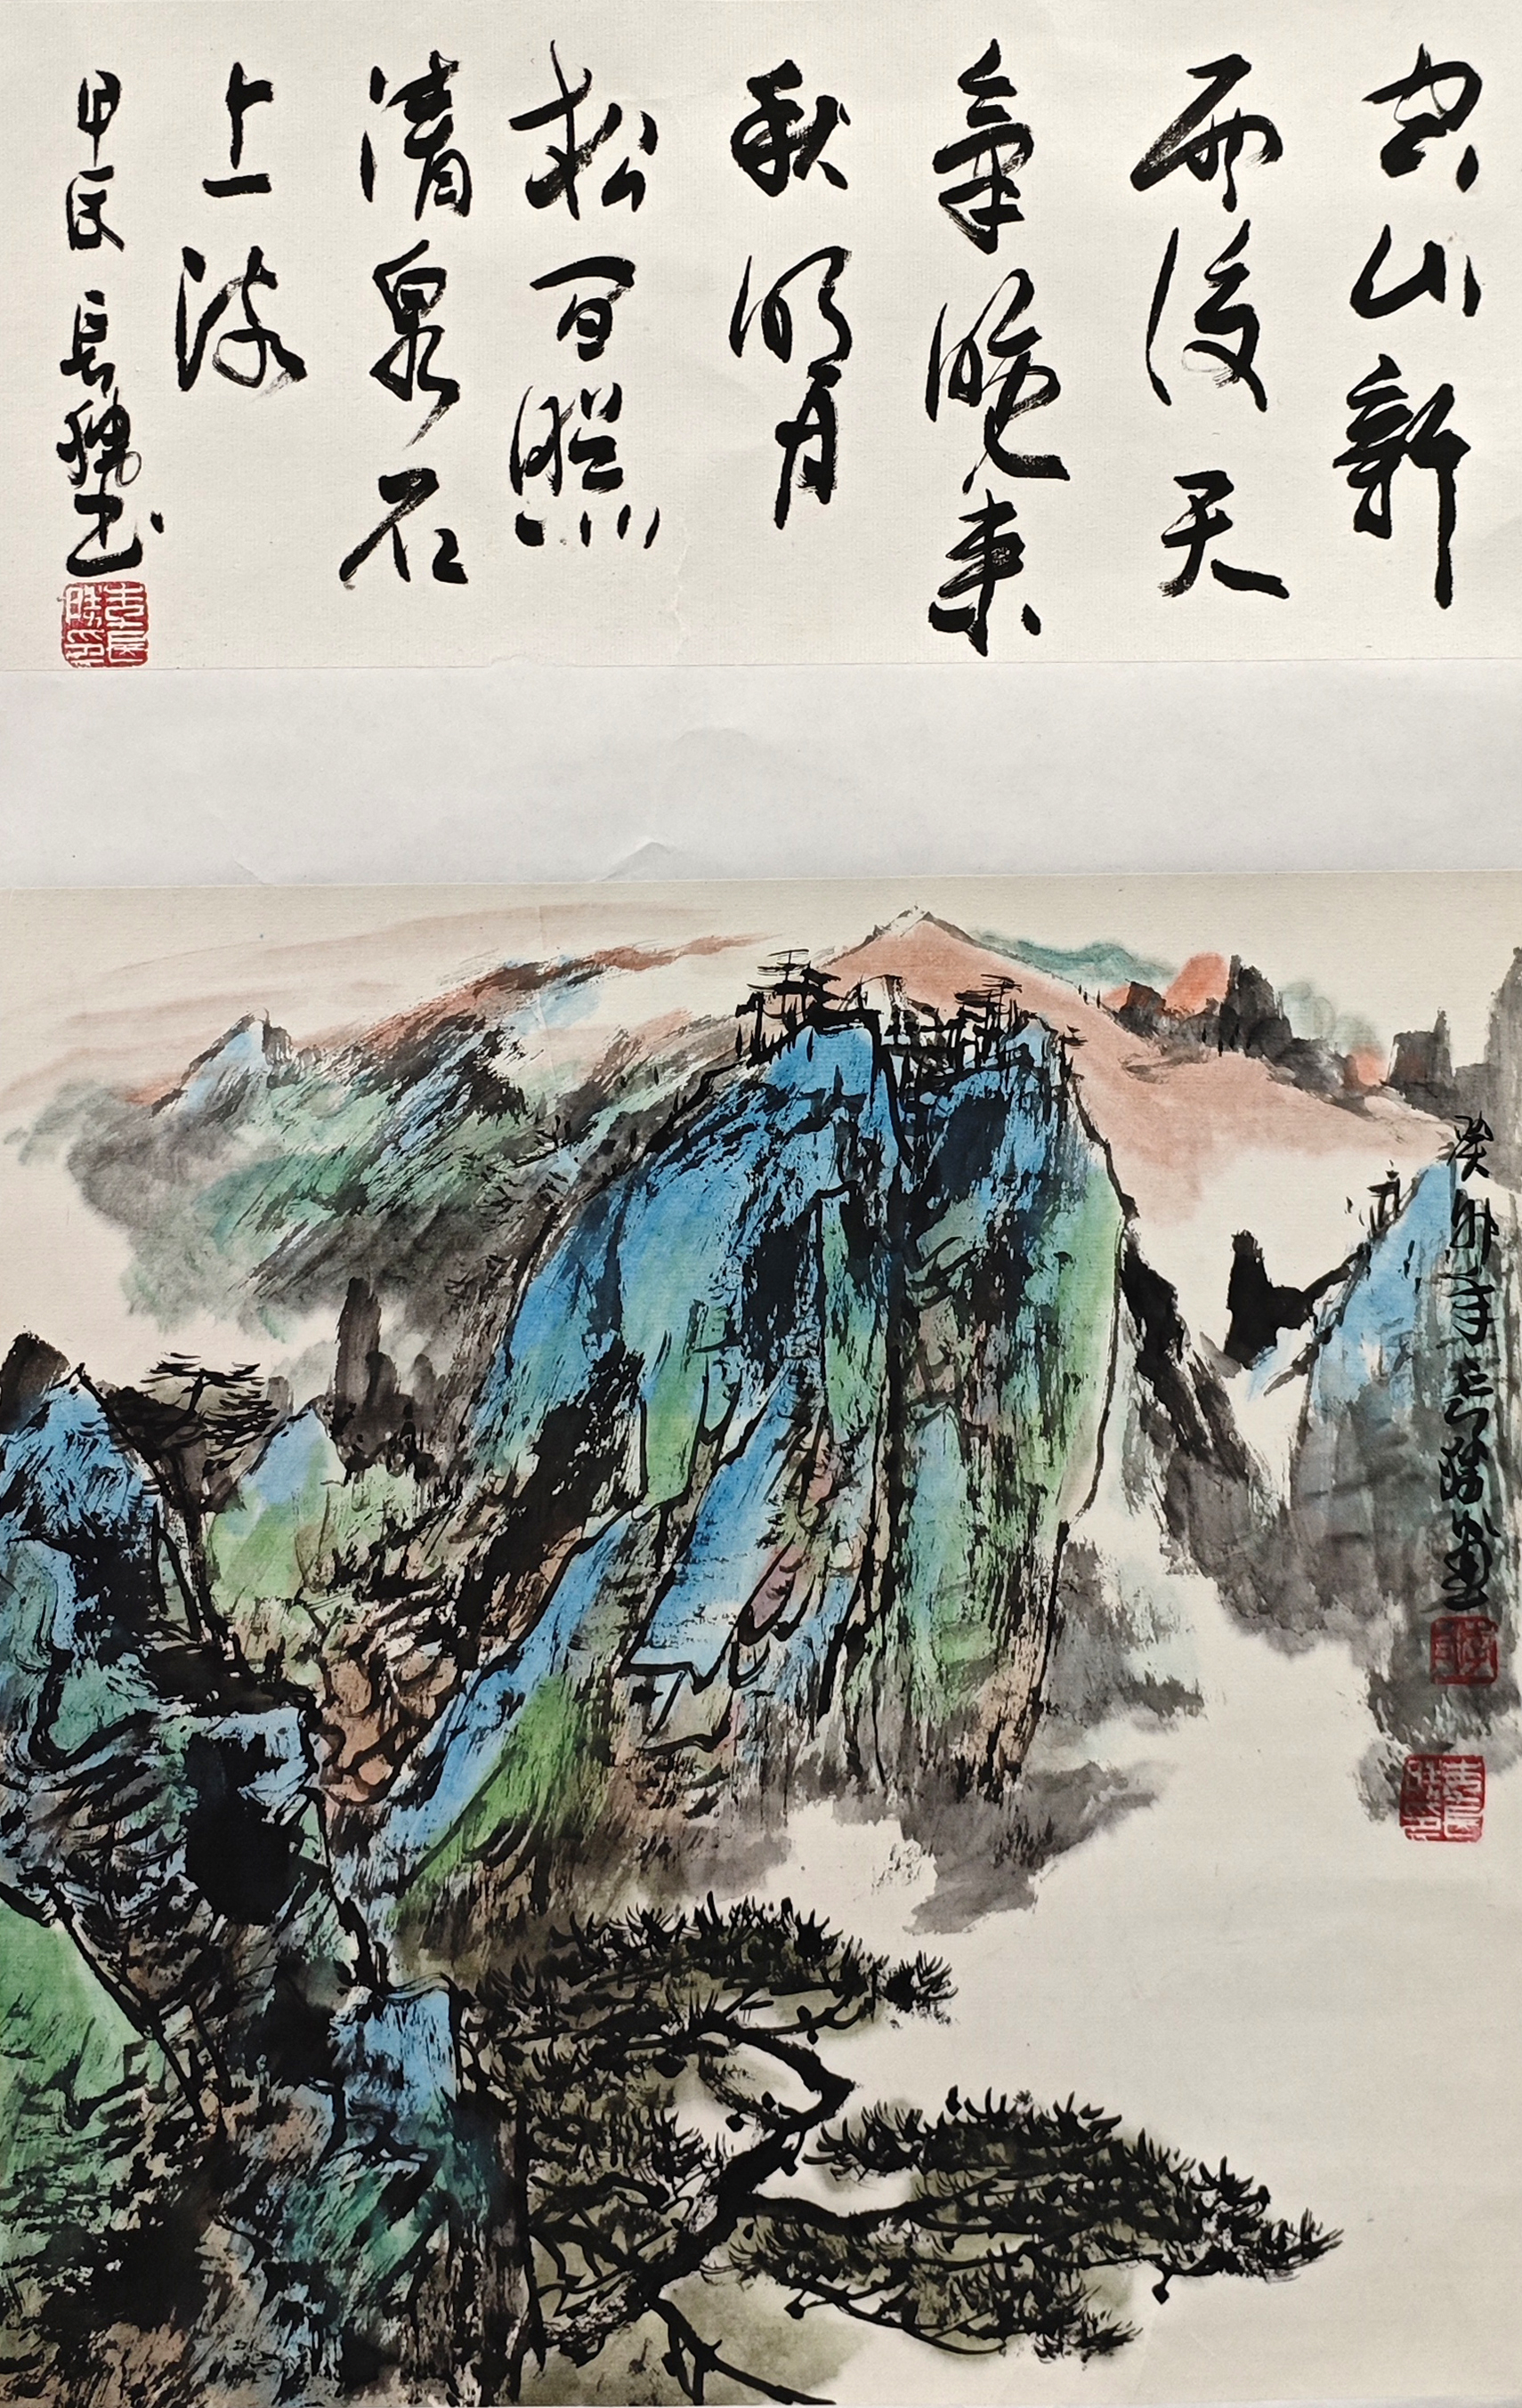 空山新
雨後天
氣晚来
秋明月
松間照
清泉石
上流
甲辰 長勝书
癸卯年长勝畫